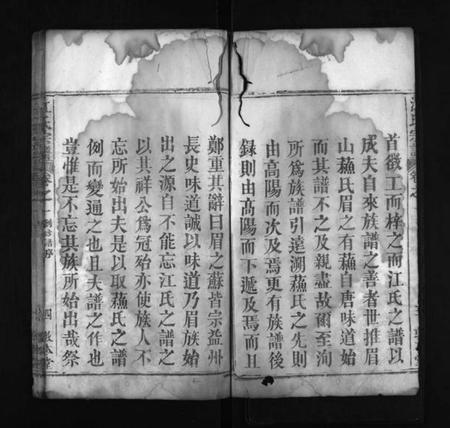 首徵工而梓之而江氏之譜以
成夫自來族譜之善者世推眉
山蘓氏眉之有蘓自唐味道始
而其譜不之及親盡故爾至洵
所為族譜引遠溯蘓氏之先則
由高陽而次及焉更有族譜後
錄則由高陽而下遞及焉而且
鄭重其辭曰眉之蘇皆宗益州
長史味道誠以味道乃眉族始
出之源自不能忘江氏之譜之
以其祥公為冠殆亦使族人不
忘所始出夫是以取蘓氏之譜
例而變通之也且夫譜之作也
豈惟是不忘其族所始出哉祭